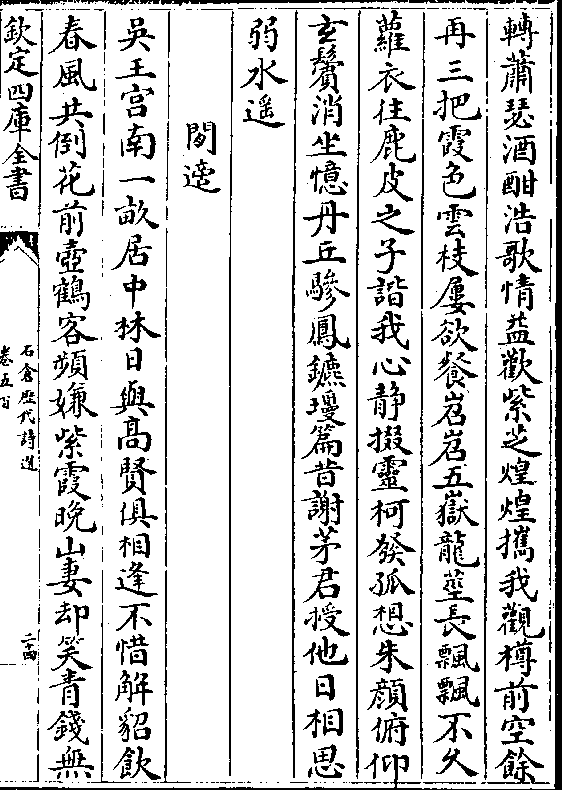 轉蕭瑟酒酣浩歌情益歡紫芝煌煌攜我觀樽前空餘
再三把霞色雲枝屢欲餐岧岧五嶽龍堂長飄飄不久
蘿衣往鹿皮之子諧我心靜掇靈柯發孤想朱顏俯仰
玄鬢消坐憶丹丘驂鳳鑣瓊篇昔謝茅君授他日相思
弱水遥
閒遊
吳王宮南一畝居中林日與高賢俱相逢不惜解貂飲
春風共倒花前壺鶴客頻嫌紫霞晚山妻却笑青錢無
欽定四庫全書
石倉歷代詩選
卷五百
二十四